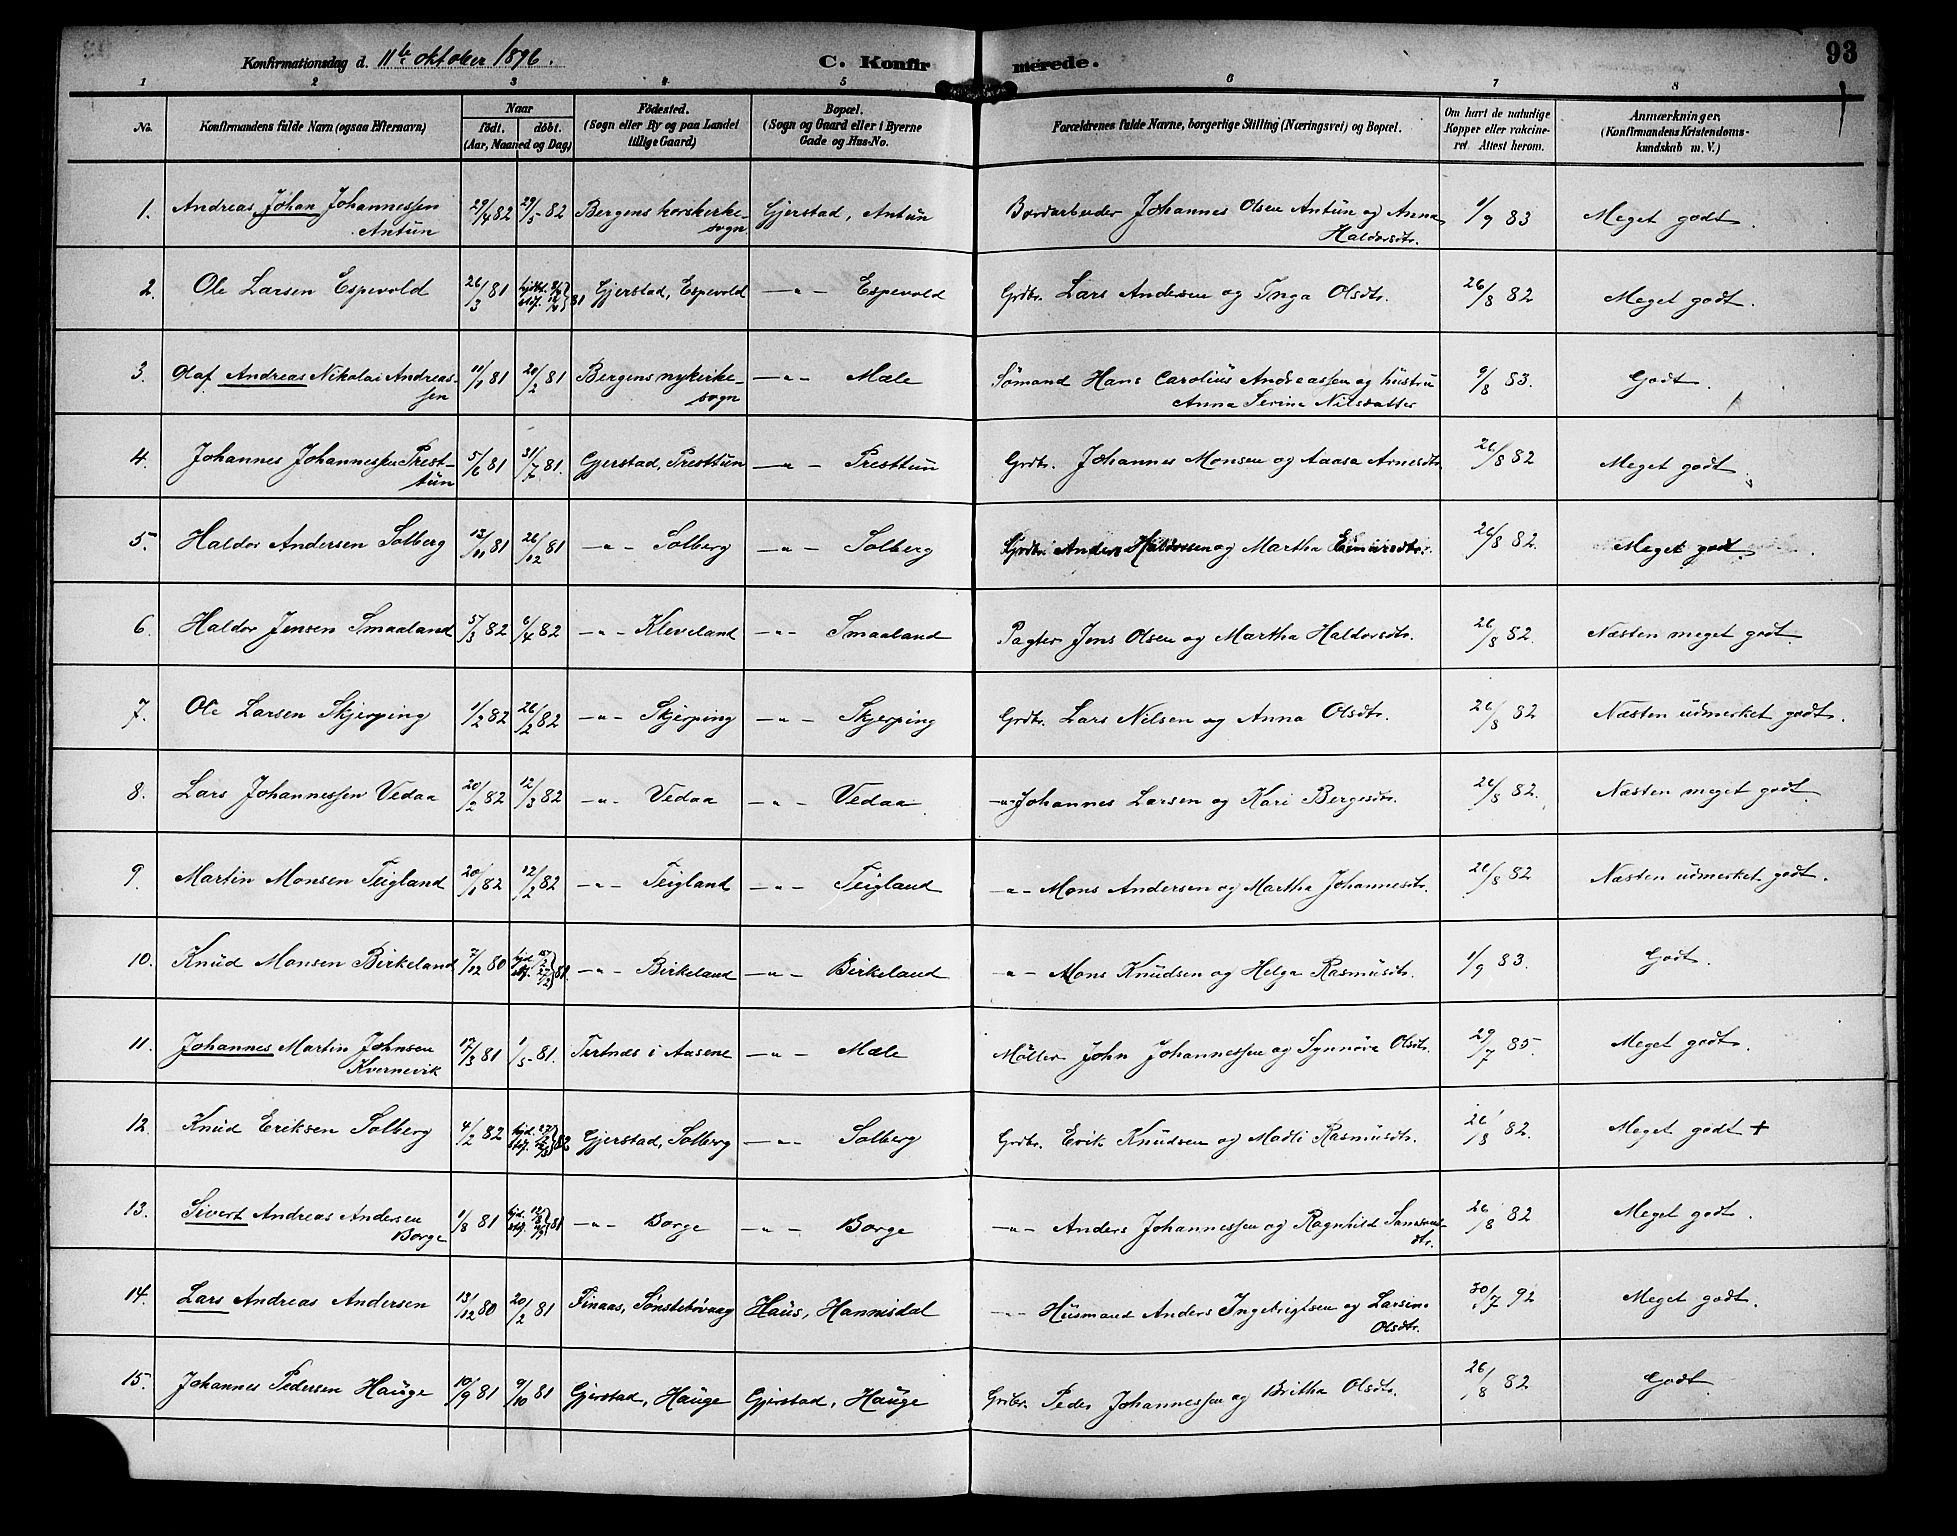 Konfirmationsdag d. 11te oktober 1896. C. Konfirmerede. 93
1 2 3 4 5 6 7 8
No. Konfirmandens fulde Navn (ogsaa Efternavn) Naar födt. döbt. (Aar, Maaned og Dag) Födested. (Sogn eller By og paa Landet tillige Gaard) Bopæl. (Sogn og Gaard eller i Byerne Gade og Hus-No. Forældrenes fulde Navne, borgerlige Stilling (Næringsvei) og Bopæl. Om havt de naturlige Kopper eller vakcineret. Attest herom. Anmærkninger. (Konfirmandens Kristendomskundskab m. V.)
1. Andreas Johan Johannessen Antun 29/4 82 29/5 82 Bergens korskirkesogn Gjerstad, Antun Johannes Olsen Antun og Anna Haldorsdtr. 1/9 83 Meget godt.
2. Ole Larsen Espevold 26/3 81 81 Gjerstad, Espevold —"— Espevold Grdbr. Lars Andersen og Inga Olsdtr. 26/8 82 Meget godt.
3. Olaf Andreas Nikolai Andreassen 11/1 81 20/2 81 Bergens nykirkesogn —"— Mæle Sömand Hans Carolius Andreassen og hustru Anna Serine Nilsdatter 9/8 83. Godt.
4. Johannes Johannessen Presttun 5/6 81 31/7 81. Gjerstad, Presttun —"— Presttun Grdbr. Johannes Monsen og Aasa Arnesdtr. 26/8 82 Meget godt.
5. Haldor Andersen Solberg 13/11 81 26/12 81 —"— Solberg —"— Solberg Grdbr. Anders Haldorsen og Martha 26/8 82. Meget godt.
6. Haldor Jensen Smaaland 5/3 82 6/4 82 —"— Kleveland —"— Smaaland Pagter Jens Olsen og Martha Haldorsdtr. 26/8 82. Næsten meget godt.
7. Ole Larsen Skjerping 1/2 82 26/2 82 —"— Skjerping —"— Skjerping Grdbr. Lars Nilsen og Anna Olsdtr. 26/8 82 Næsten udmerket godt.
8. Lars Johannessen Vedaa 20/2 82 12/3 82 —"— Vedaa —"— Vedaa —"— Johannes Larsen og Kari Bergesdtr. 26/8 82. Næsten meget godt.
9. Martin Monsen Teigland 20/1 82 12/2 82 —"— Teigland —"— Teigland —"— Mons Andersen og Martha Johannesdtr. 26/8 82 Næsten udmerket godt.
10. Knud Monsen Birkeland 7/12 80 81. —"— Birkeland —"— Birkeland —"— Mons Knudsen og Helga Rasmusdtr. 1/9 83. Godt.
11. Johannes Martin Johnsen Kvernevik 17/3 81 1/5 81. Tertnæs i Aasene —"— Mæle Möller John Johannessen og Synnöva Olsdtr. 29/7 85. Meget godt.
12. Knud Eriksen Solberg 4/2 82 82 Gjerstad, Solberg —"— Solberg Grdbr. Erik Knudsen og Madli Rasmusdtr. 26/8 82. Meget godt +
13. Sivert Andreas Andersen Borge 1/8 81 81 —"— Borge —"— Borge —"— Anders Johannessen og Ragnhild 26/8 82 Meget godt.
14. Lars Andreas Andersen 13/12 80 20/2 81 Finaas, Sönstebövaag Haus, Hannisdal —"— Husmand Anders Ingebrigtsen og Larsine Olsdtr. 30/7 92 Meget godt.
15. Johannes Pedersen Hauge 10/9 81 9/10 81 Gjerstad, Hauge Gjerstad, Hauge Grdbr. Peder Johannessen og Britha Olsdtr. 26/8 82 Godt.